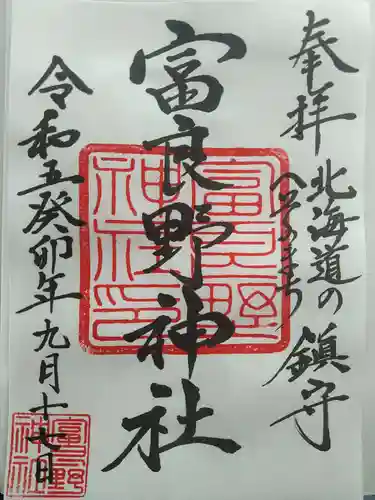 奉拝
北海道の
へそのまち
鎮守
富良野神社
富良野神社印
令和五癸卯年九月十七日
富良野神社